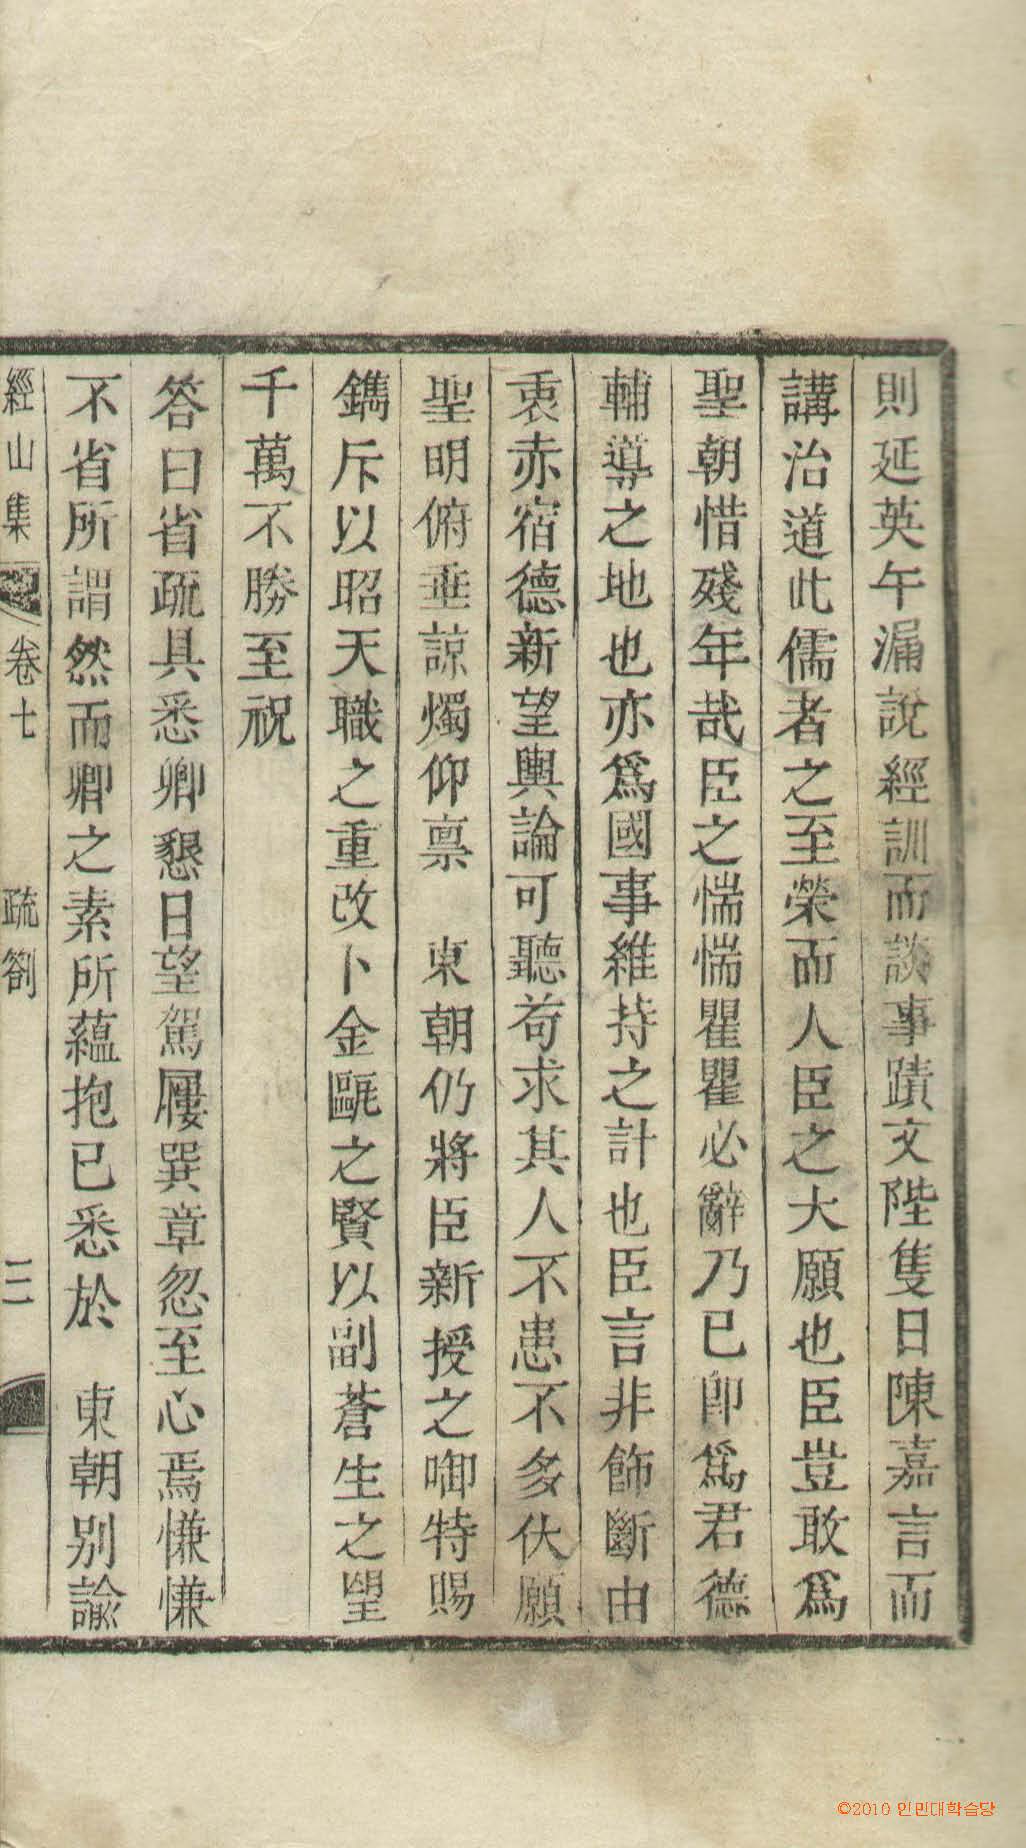 則延英午漏說經訓而談事蹟文陛隻日陳嘉言而
講治道此儒者之至榮而人臣之大願也臣豈敢爲
聖朝惜殘年哉臣之惴惴瞿瞿必辭乃已卽爲君德
輔導之地也亦爲國事維持之計也臣言非飾斷由
衷赤宿德新望輿論可聽苟求其人不患不多伏願
聖明俯垂諒燭仰禀　東朝仍將臣新授之啣特賜
鐫斥以昭天職之重改卜金甌之賢以副蒼生之望
千萬不勝至祝
答曰省疏具悉卿懇日望駕屨巽章忽至心焉慊慊
不省所謂然而卿之素所蘊抱已悉於　東朝別諭
經山集 卷七 疏劄 二
©2010 인민대학습당